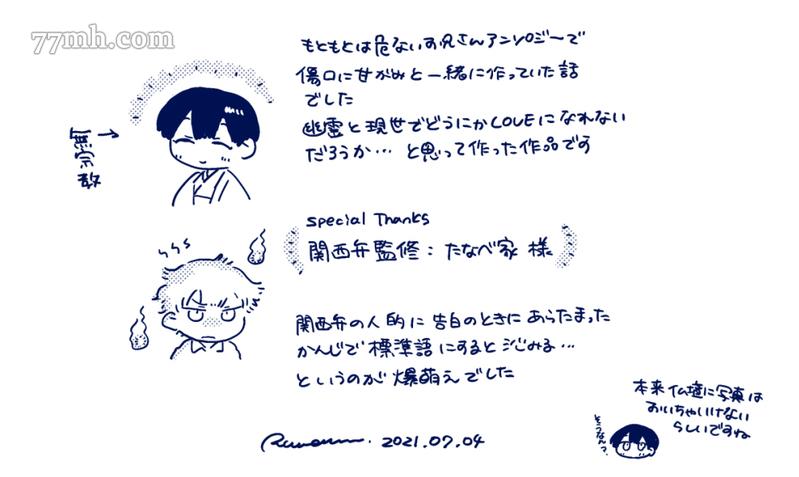 77mh.com
もともとは危ないお兄さんアンソロジーで
傷口に甘がみと一緒に作っていた話
でした
幽霊と現世でどうにかLOVEになれない
だろうか… と思って作った作品です
無宗教
special Thanks
関西弁監修：たなべ家 様
関西弁の人的に 告白のときに あらたまった
かんじで標準語にすると 沁みる…
というのが 爆萌えでした
本来 仏壇に写真は
おいちゃいけない
らしいですね
そうなん?
2021.07.04